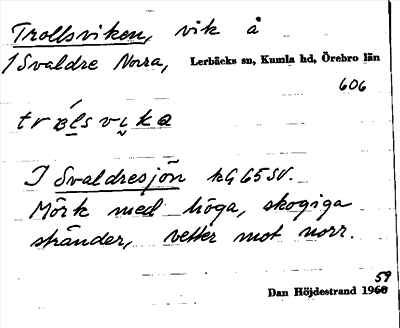 Trollsviken, vik å
1 Svaldre Norra, Lerbäcks sn, Kumla hd, Örebro län
606
I Svaldresjön kG 65 SV.
Mörk med höga, skogiga
stränder, vetter mot norr.
59
Dan Höjdestrand 1960